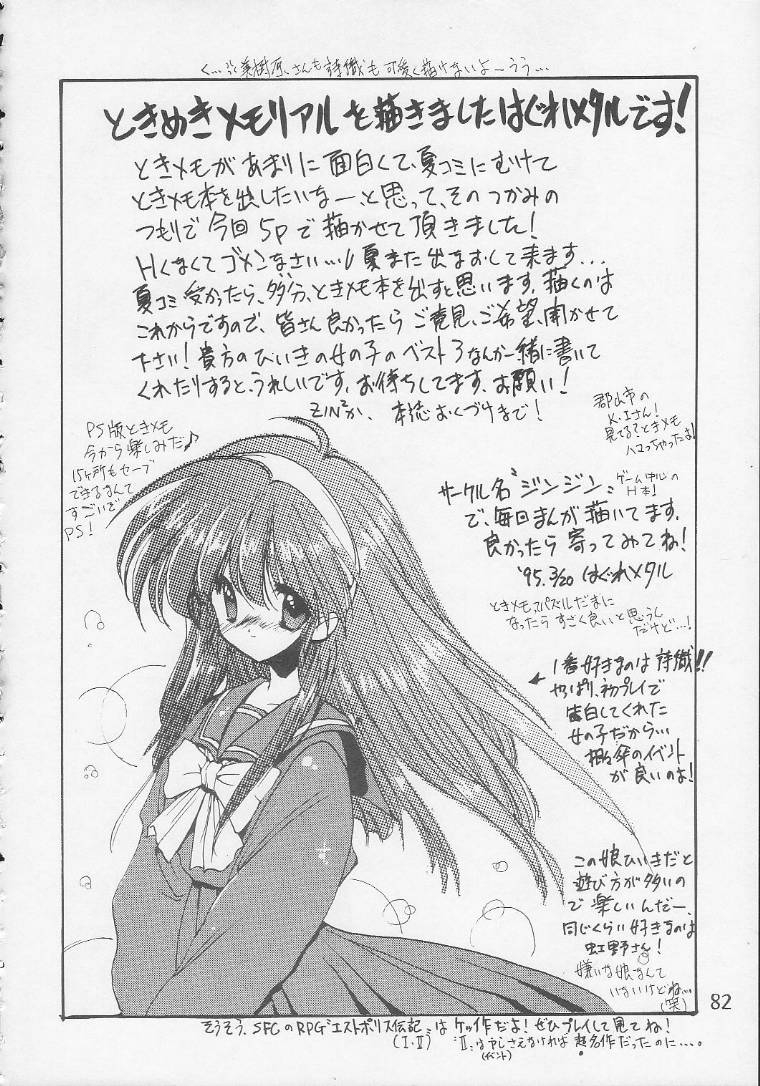 さんも詩織も可愛く描けないよーうう…
ときめきメモリアルを描きましたはぐれメタルです!
ときメモがあまりに面白くて、夏コミにむけて
ときメモ本を出したいなー、と思って、そのつかみの
つもりで今回5Pで描かせて頂きました!
Hくなくてゴメンなさい…!夏また出なおして来ます…
夏コミ受かったら、多分、ときメモ本を出すと思います。描くのは
これからですので、皆さん良かったらご意見、ご希望、聞かせて
下さい!貴方のひいきの女の子のベスト3なんか一緒に書いて
くれたりすると、うれしいです。お待ちしてます。お願い!
ZIN²か、本誌おくづけまで!
郡山市の
K・Iさん!
見てる?ときメモ
ハマっちゃったよ!
PS版ときメモ
今から楽しみだ♪
15ヶ所もセーブ
できるなんて
すごいぞ
PS!
サークル名〝ジンジン〟
ゲーム中心の
H本!
で、毎回まんが描いてます。
良かったら寄ってみてね!
'95.3/20 はぐれメタル
ときメモスパズルだまに
なったらすごく良いと思うし
だけど…!
1番好きなのは詩織!!
やっぱり、初プレイで
告白してくれた
女の子だから…
相々傘のイベント
が良いのよ!
この娘ひいきだと
遊び方が多いの
で楽しいんだー、
同じくらい好きなのは
虹野さん!
嫌いな娘なんて
いないけどね…
(笑)
82
そうそう、SFCのRPG〝エストポリス伝記〟はケッ作だよ!ぜひプレイして見てね!
(I・II)
〝II〟は さえなければ超名作だったのに…。